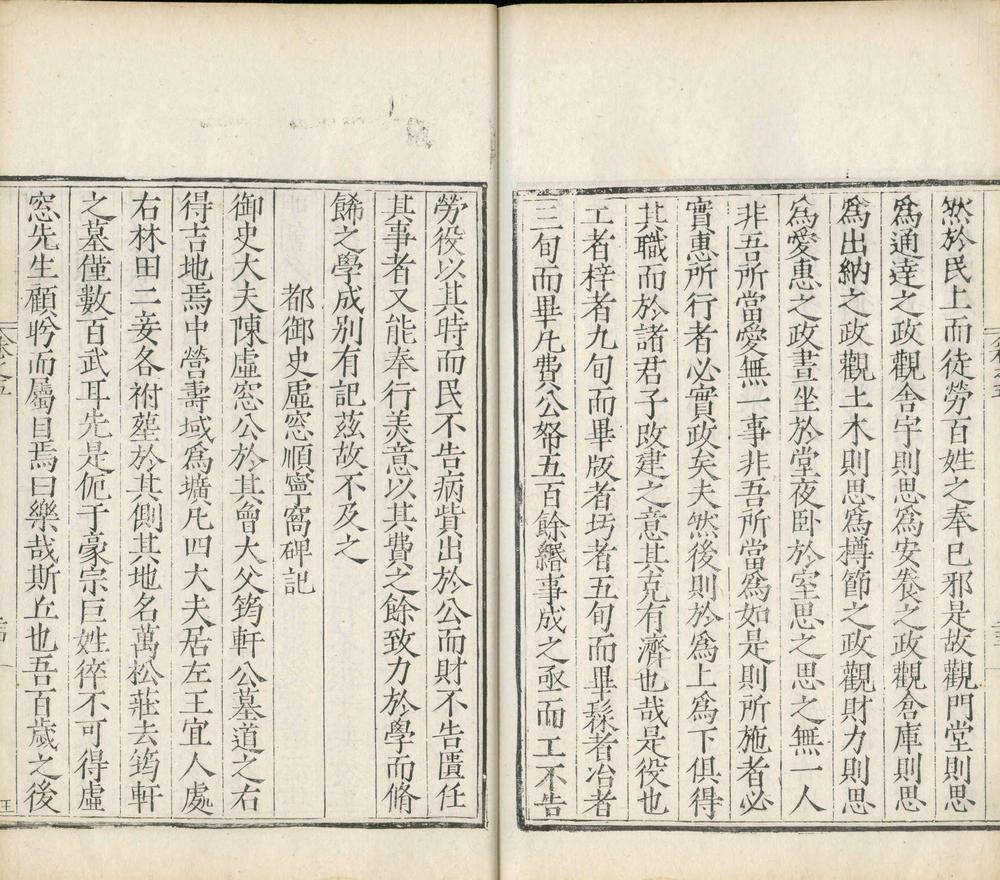 然於民上而徒勞百姓之奉已邪是故觀門堂則思
爲通達之政觀舍宇則思爲安養之政觀倉庫則思
爲出納之政觀土木則思爲樽節之政觀財力則思
爲愛惠之政晝坐於堂夜卧於室思之思之無一人
非吾所當愛無一事非吾所當爲如是則所施者必
實惠所行者必實政矣夫然後則於爲上爲下俱得
其職而於諸君子改建之意其克有濟也哉是役也
工者梓者九旬而畢版者圬者五旬而畢髹者冶者
三旬而畢凡費公帑五百餘緡事成之亟而工不告
勞役以其時而民不告病貲出於公而財不告匱任
其事者又能奉行美意以其費之餘致力於學而脩
餙之學成别有記茲故不及之
都御史虛窓順寧窩碑記
御史大夫陳虛窓公於其曾大父筠軒公墓道之右
得吉地焉中營壽域爲壙凡四大夫居左王宜人處
右林田二妾各祔塟於其側其地名萬松莊去筠軒
之墓僅數百武耳先是伌于豪宗巨姓倅不可得虛
窓先生顧盻而屬目焉曰樂哉斯丘也吾百歲之後